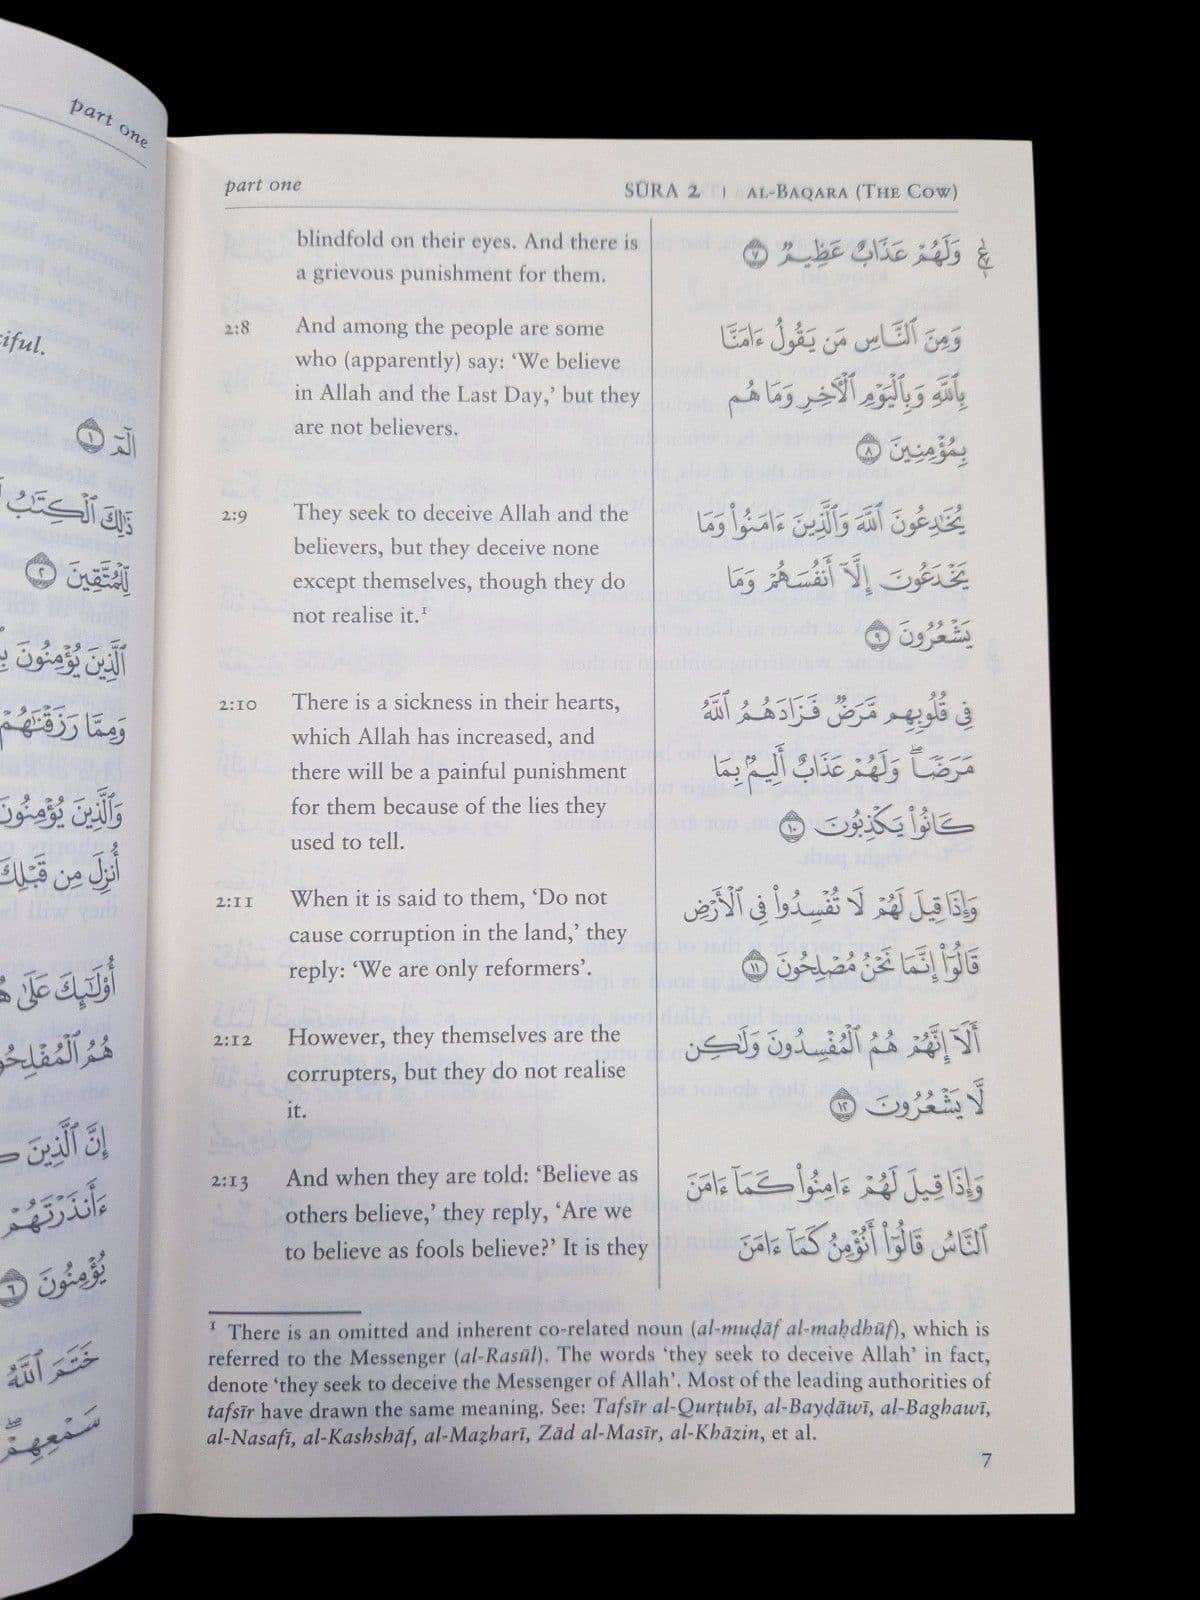 part one
ciful.
الٓمٓ ١
ذَٰلِكَ ٱلْكِتَٰبُ
لِّلْمُتَّقِينَ ٢
ٱلَّذِينَ يُؤْمِنُونَ
وَمِمَّا رَزَقْنَٰهُمْ
وَٱلَّذِينَ يُؤْمِنُونَ
أُنزِلَ مِن قَبْلِكَ
أُو۟لَٰٓئِكَ عَلَىٰ
هُمُ ٱلْمُفْلِحُونَ
إِنَّ ٱلَّذِينَ
ءَأَنذَرْتَهُمْ
يُؤْمِنُونَ ٦
خَتَمَ ٱللَّهُ
سَمْعِهِمْ ۖ
part one SŪRA 2 | AL-BAQARA (THE COW)
blindfold on their eyes. And there is
a grievous punishment for them.
وَلَهُمْ عَذَابٌ عَظِيمٌ ٧
2:8 And among the people are some
who (apparently) say: ‘We believe
in Allah and the Last Day,’ but they
are not believers.
وَمِنَ ٱلنَّاسِ مَن يَقُولُ ءَامَنَّا
بِٱللَّهِ وَبِٱلْيَوْمِ ٱلْءَاخِرِ وَمَا هُم
بِمُؤْمِنِينَ ٨
2:9 They seek to deceive Allah and the
believers, but they deceive none
except themselves, though they do
not realise it.¹
يُخَٰدِعُونَ ٱللَّهَ وَٱلَّذِينَ ءَامَنُوا۟ وَمَا
يَخْدَعُونَ إِلَّآ أَنفُسَهُمْ وَمَا
يَشْعُرُونَ ٩
2:10 There is a sickness in their hearts,
which Allah has increased, and
there will be a painful punishment
for them because of the lies they
used to tell.
فِى قُلُوبِهِم مَّرَضٌ فَزَادَهُمُ ٱللَّهُ
مَرَضًا ۖ وَلَهُمْ عَذَابٌ أَلِيمٌۢ بِمَا
كَانُوا۟ يَكْذِبُونَ ١٠
2:11 When it is said to them, ‘Do not
cause corruption in the land,’ they
reply: ‘We are only reformers’.
وَإِذَا قِيلَ لَهُمْ لَا تُفْسِدُوا۟ فِى ٱلْأَرْضِ
قَالُوٓا۟ إِنَّمَا نَحْنُ مُصْلِحُونَ ١١
2:12 However, they themselves are the
corrupters, but they do not realise
it.
أَلَآ إِنَّهُمْ هُمُ ٱلْمُفْسِدُونَ وَلَٰكِن
لَّا يَشْعُرُونَ ١٢
2:13 And when they are told: ‘Believe as
others believe,’ they reply, ‘Are we
to believe as fools believe?’ It is they
وَإِذَا قِيلَ لَهُمْ ءَامِنُوا۟ كَمَآ ءَامَنَ
ٱلنَّاسُ قَالُوٓا۟ أَنُؤْمِنُ كَمَآ ءَامَنَ
¹ There is an omitted and inherent co-related noun (al-muḍāf al-maḥdhūf), which is
referred to the Messenger (al-Rasūl). The words ‘they seek to deceive Allah’ in fact,
denote ‘they seek to deceive the Messenger of Allah’. Most of the leading authorities of
tafsīr have drawn the same meaning. See: Tafsīr al-Qurṭubī, al-Bayḍāwī, al-Baghawī,
al-Nasafī, al-Kashshāf, al-Maẓharī, Zād al-Masīr, al-Khāzin, et al.
7